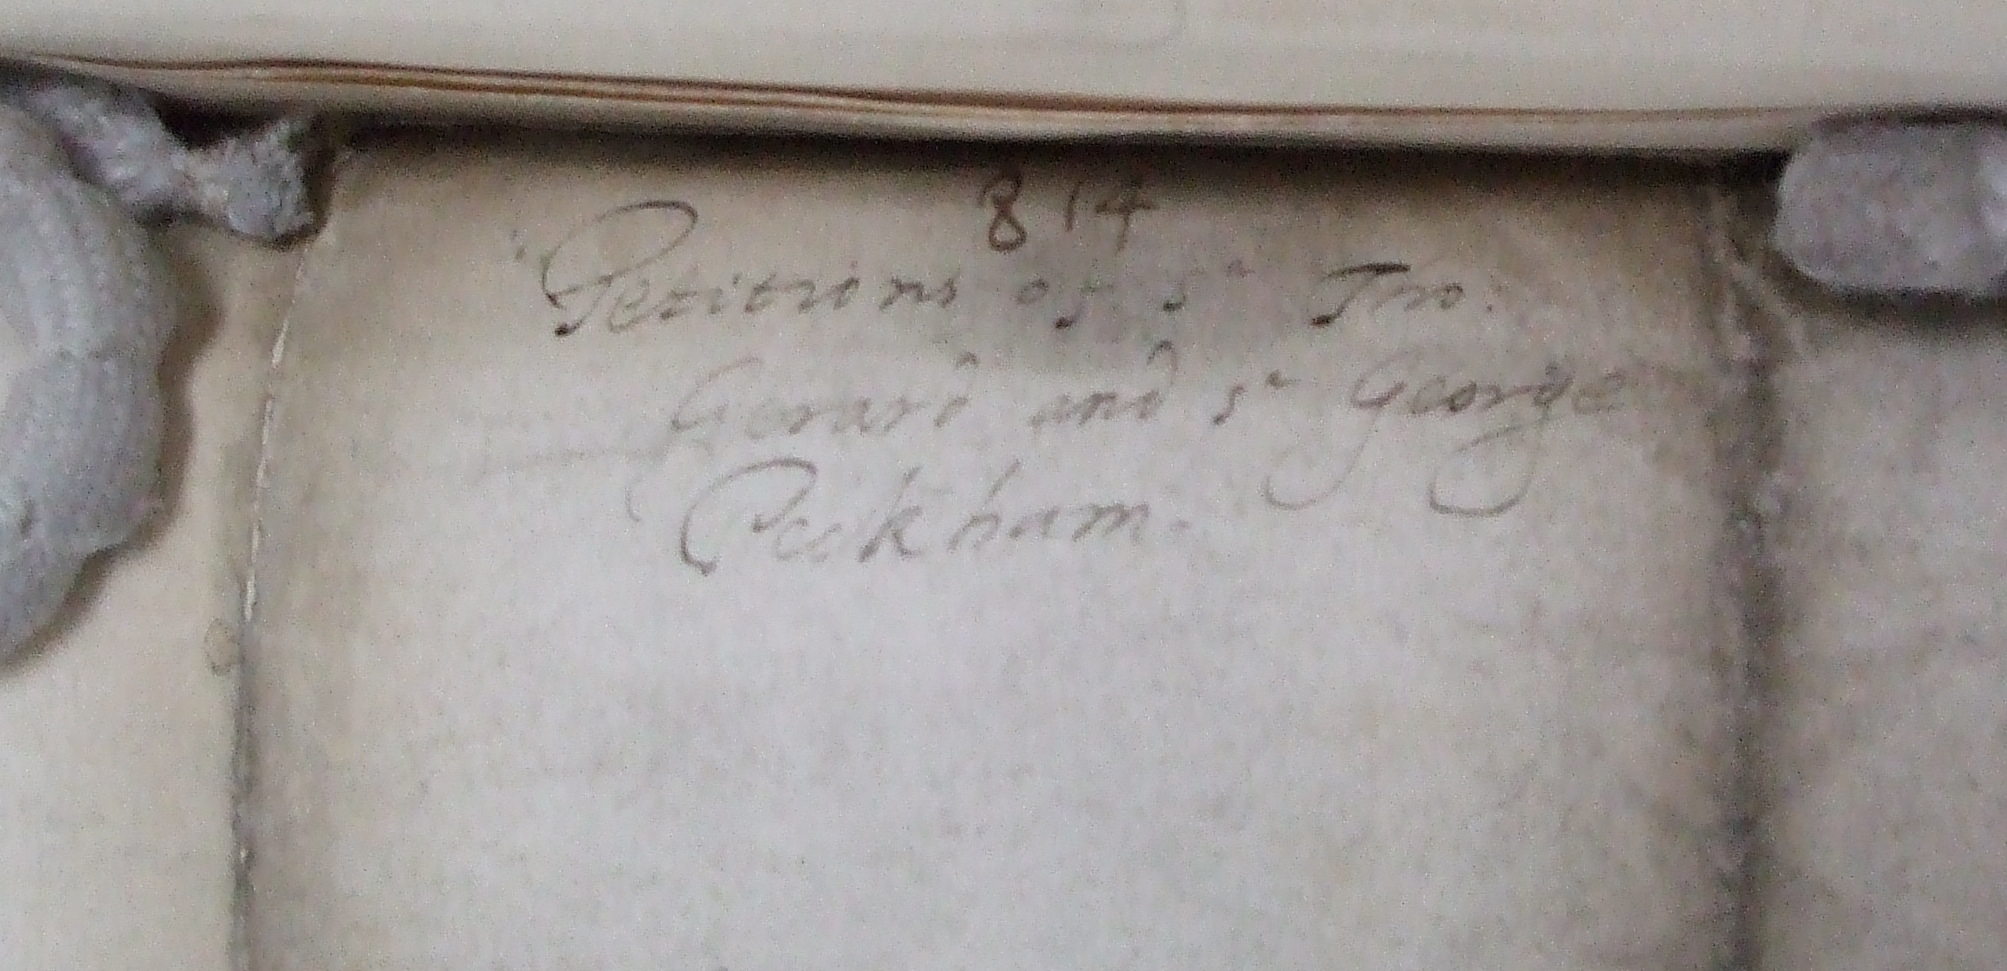 814
Petitions of Sr Tho:
Gerard and Sr George
Peckham.